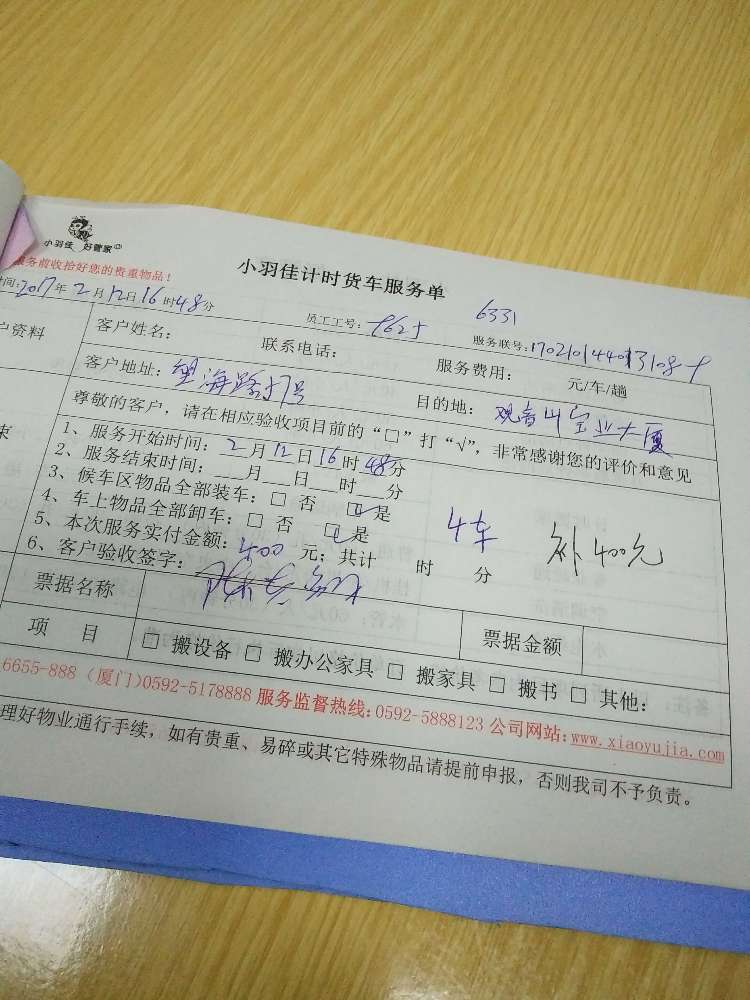 小羽佳 好管家
服务前收拾好您的贵重物品！
小羽佳计时货车服务单
6331
时间：2017年2月12日16时48分
员工工号：
服务联号：
户资料
客户姓名：
联系电话：
服务费用： 元/车/趟
客户地址：望海路57号
目的地：观音山宝业大厦
尊敬的客户，请在相应验收项目前的“□”打“√”，非常感谢您的评价和意见
1、服务开始时间：2月12日16时48分
2、服务结束时间： 月 日 时 分
3、候车区物品全部装车：□ 否 □ 是
4、车上物品全部卸车：□ 否 □ 是
5、本次服务实付金额：400元；共计 时 分
4车 补400元
6、客户验收签字：
票据名称 票据金额
项 目 □ 搬设备 □ 搬办公家具 □ 搬家具 □ 搬书 □ 其他：
6655-888（厦门）0592-5178888 服务监督热线：0592-5888123 公司网站：www.xiaoyujia.com
理好物业通行手续，如有贵重、易碎或其它特殊物品请提前申报，否则我司不予负责。